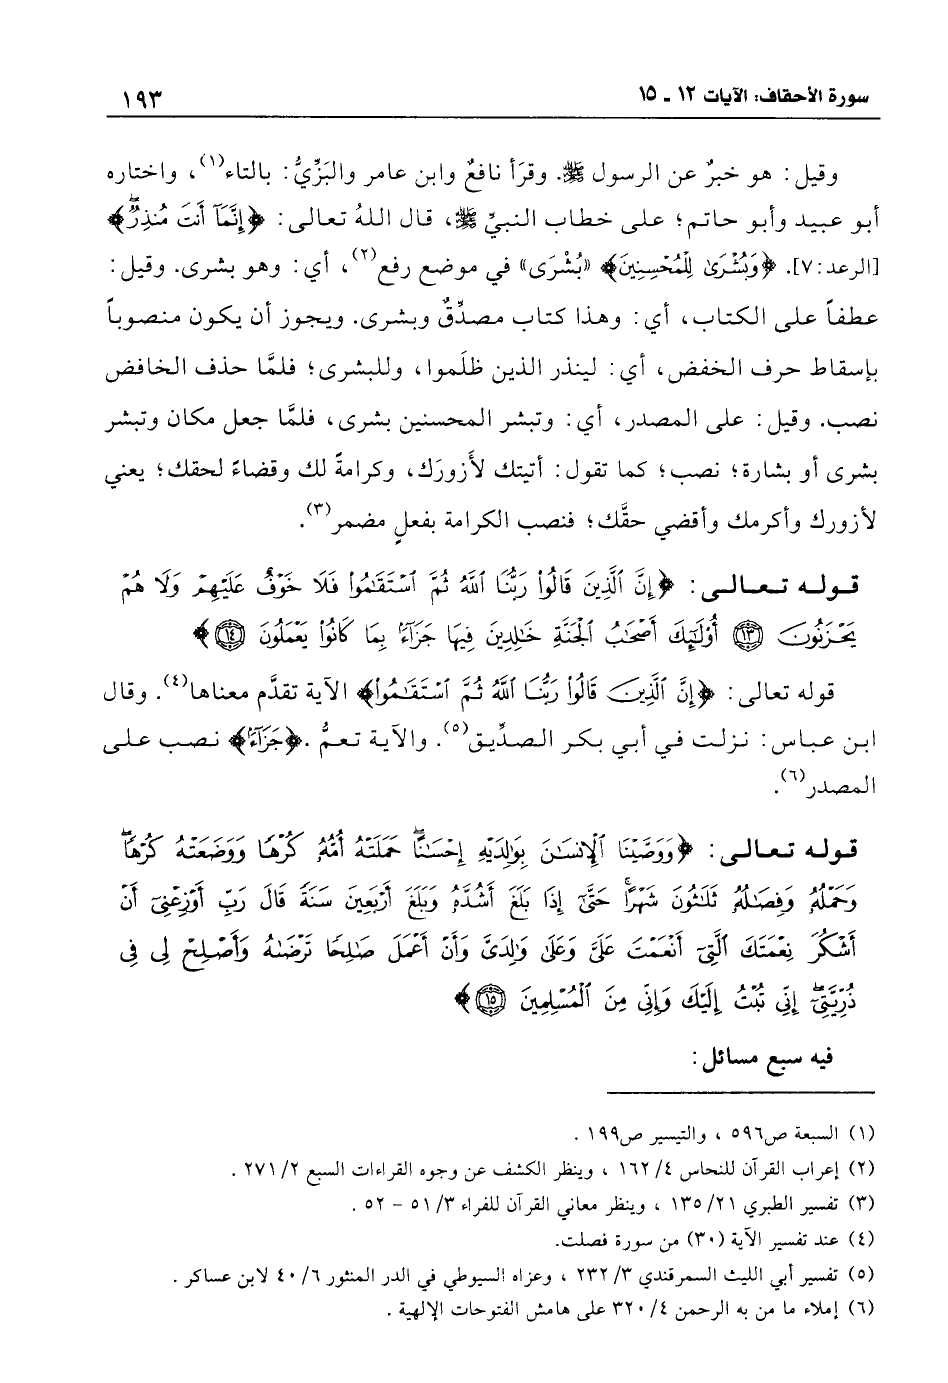 سورة الأحقاف: الآيات ١٢ ـ ١٥ ١٩٣
وقيل: هو خبرٌ عن الرسول ﷺ. وقرَأ نافعٌ وابن عامر والبَزِّيُّ: بالتاء(١)، واختاره
أبو عبيد وأبو حاتم؛ على خطاب النبيِّ ﷺ، قال اللهُ تعالى: ﴿إِنَّمَآ أَنتَ مُنذِرٌۖ﴾
[الرعد:٧]. ﴿وَبُشْرَىٰ لِلْمُحْسِنِينَ﴾ «بُشْرَى» في موضع رفع(٢)، أي: وهو بشرى. وقيل:
عطفاً على الكتاب، أي: وهذا كتاب مصدِّقٌ وبشرى. ويجوز أن يكون منصوباً
بإسقاط حرف الخفض، أي: لينذر الذين ظلَموا، وللبشرى؛ فلمَّا حذف الخافض
نصب. وقيل: على المصدر، أي: وتبشر المحسنين بشرى، فلمَّا جعل مكان وتبشر
بشرى أو بشارة؛ نصب؛ كما تقول: أتيتك لأَزورَك، وكرامةً لك وقضاءً لحقك؛ يعني
لأزورك وأكرمك وأقضي حقَّك؛ فنصب الكرامة بفعلٍ مضمر(٣).
قوله تعالى: ﴿إِنَّ ٱلَّذِينَ قَالُوا۟ رَبُّنَا ٱللَّهُ ثُمَّ ٱسْتَقَـٰمُوا۟ فَلَا خَوْفٌ عَلَيْهِمْ وَلَا هُمْ
يَحْزَنُونَ ١٣ أُو۟لَـٰٓئِكَ أَصْحَـٰبُ ٱلْجَنَّةِ خَـٰلِدِينَ فِيهَا جَزَآءًۢ بِمَا كَانُوا۟ يَعْمَلُونَ ١٤﴾
قوله تعالى: ﴿إِنَّ ٱلَّذِينَ قَالُوا۟ رَبُّنَا ٱللَّهُ ثُمَّ ٱسْتَقَـٰمُوا۟﴾ الآية تقدَّم معناها(٤). وقال
ابن عباس: نزلت في أبي بكر الصدِّيق(٥). والآية تعمُّ. ﴿جَزَآءًۢ﴾ نصب على
المصدر(٦).
قوله تعالى: ﴿وَوَصَّيْنَا ٱلْإِنسَـٰنَ بِوَٰلِدَيْهِ إِحْسَـٰنًاۖ حَمَلَتْهُ أُمُّهُۥ كُرْهًا وَوَضَعَتْهُ كُرْهًاۖ
وَحَمْلُهُۥ وَفِصَـٰلُهُۥ ثَلَـٰثُونَ شَهْرًاۚ حَتَّىٰٓ إِذَا بَلَغَ أَشُدَّهُۥ وَبَلَغَ أَرْبَعِينَ سَنَةً قَالَ رَبِّ أَوْزِعْنِىٓ أَنْ
أَشْكُرَ نِعْمَتَكَ ٱلَّتِىٓ أَنْعَمْتَ عَلَىَّ وَعَلَىٰ وَٰلِدَىَّ وَأَنْ أَعْمَلَ صَـٰلِحًا تَرْضَىٰهُ وَأَصْلِحْ لِى فِى
ذُرِّيَّتِىٓۖ إِنِّى تُبْتُ إِلَيْكَ وَإِنِّى مِنَ ٱلْمُسْلِمِينَ ١٥﴾
فيه سبع مسائل:
(١) السبعة ص٥٩٦ ، والتيسير ص١٩٩ .
(٢) إعراب القرآن للنحاس ١٦٢/٤ ، وينظر الكشف عن وجوه القراءات السبع ٢٧١/٢ .
(٣) تفسير الطبري ١٣٥/٢١ ، وينظر معاني القرآن للفراء ٥١/٣ - ٥٢ .
(٤) عند تفسير الآية (٣٠) من سورة فصلت.
(٥) تفسير أبي الليث السمرقندي ٢٣٢/٣ ، وعزاه السيوطي في الدر المنثور ٤٠/٦ لابن عساكر .
(٦) إملاء ما من به الرحمن ٣٢٠/٤ على هامش الفتوحات الإلهية .